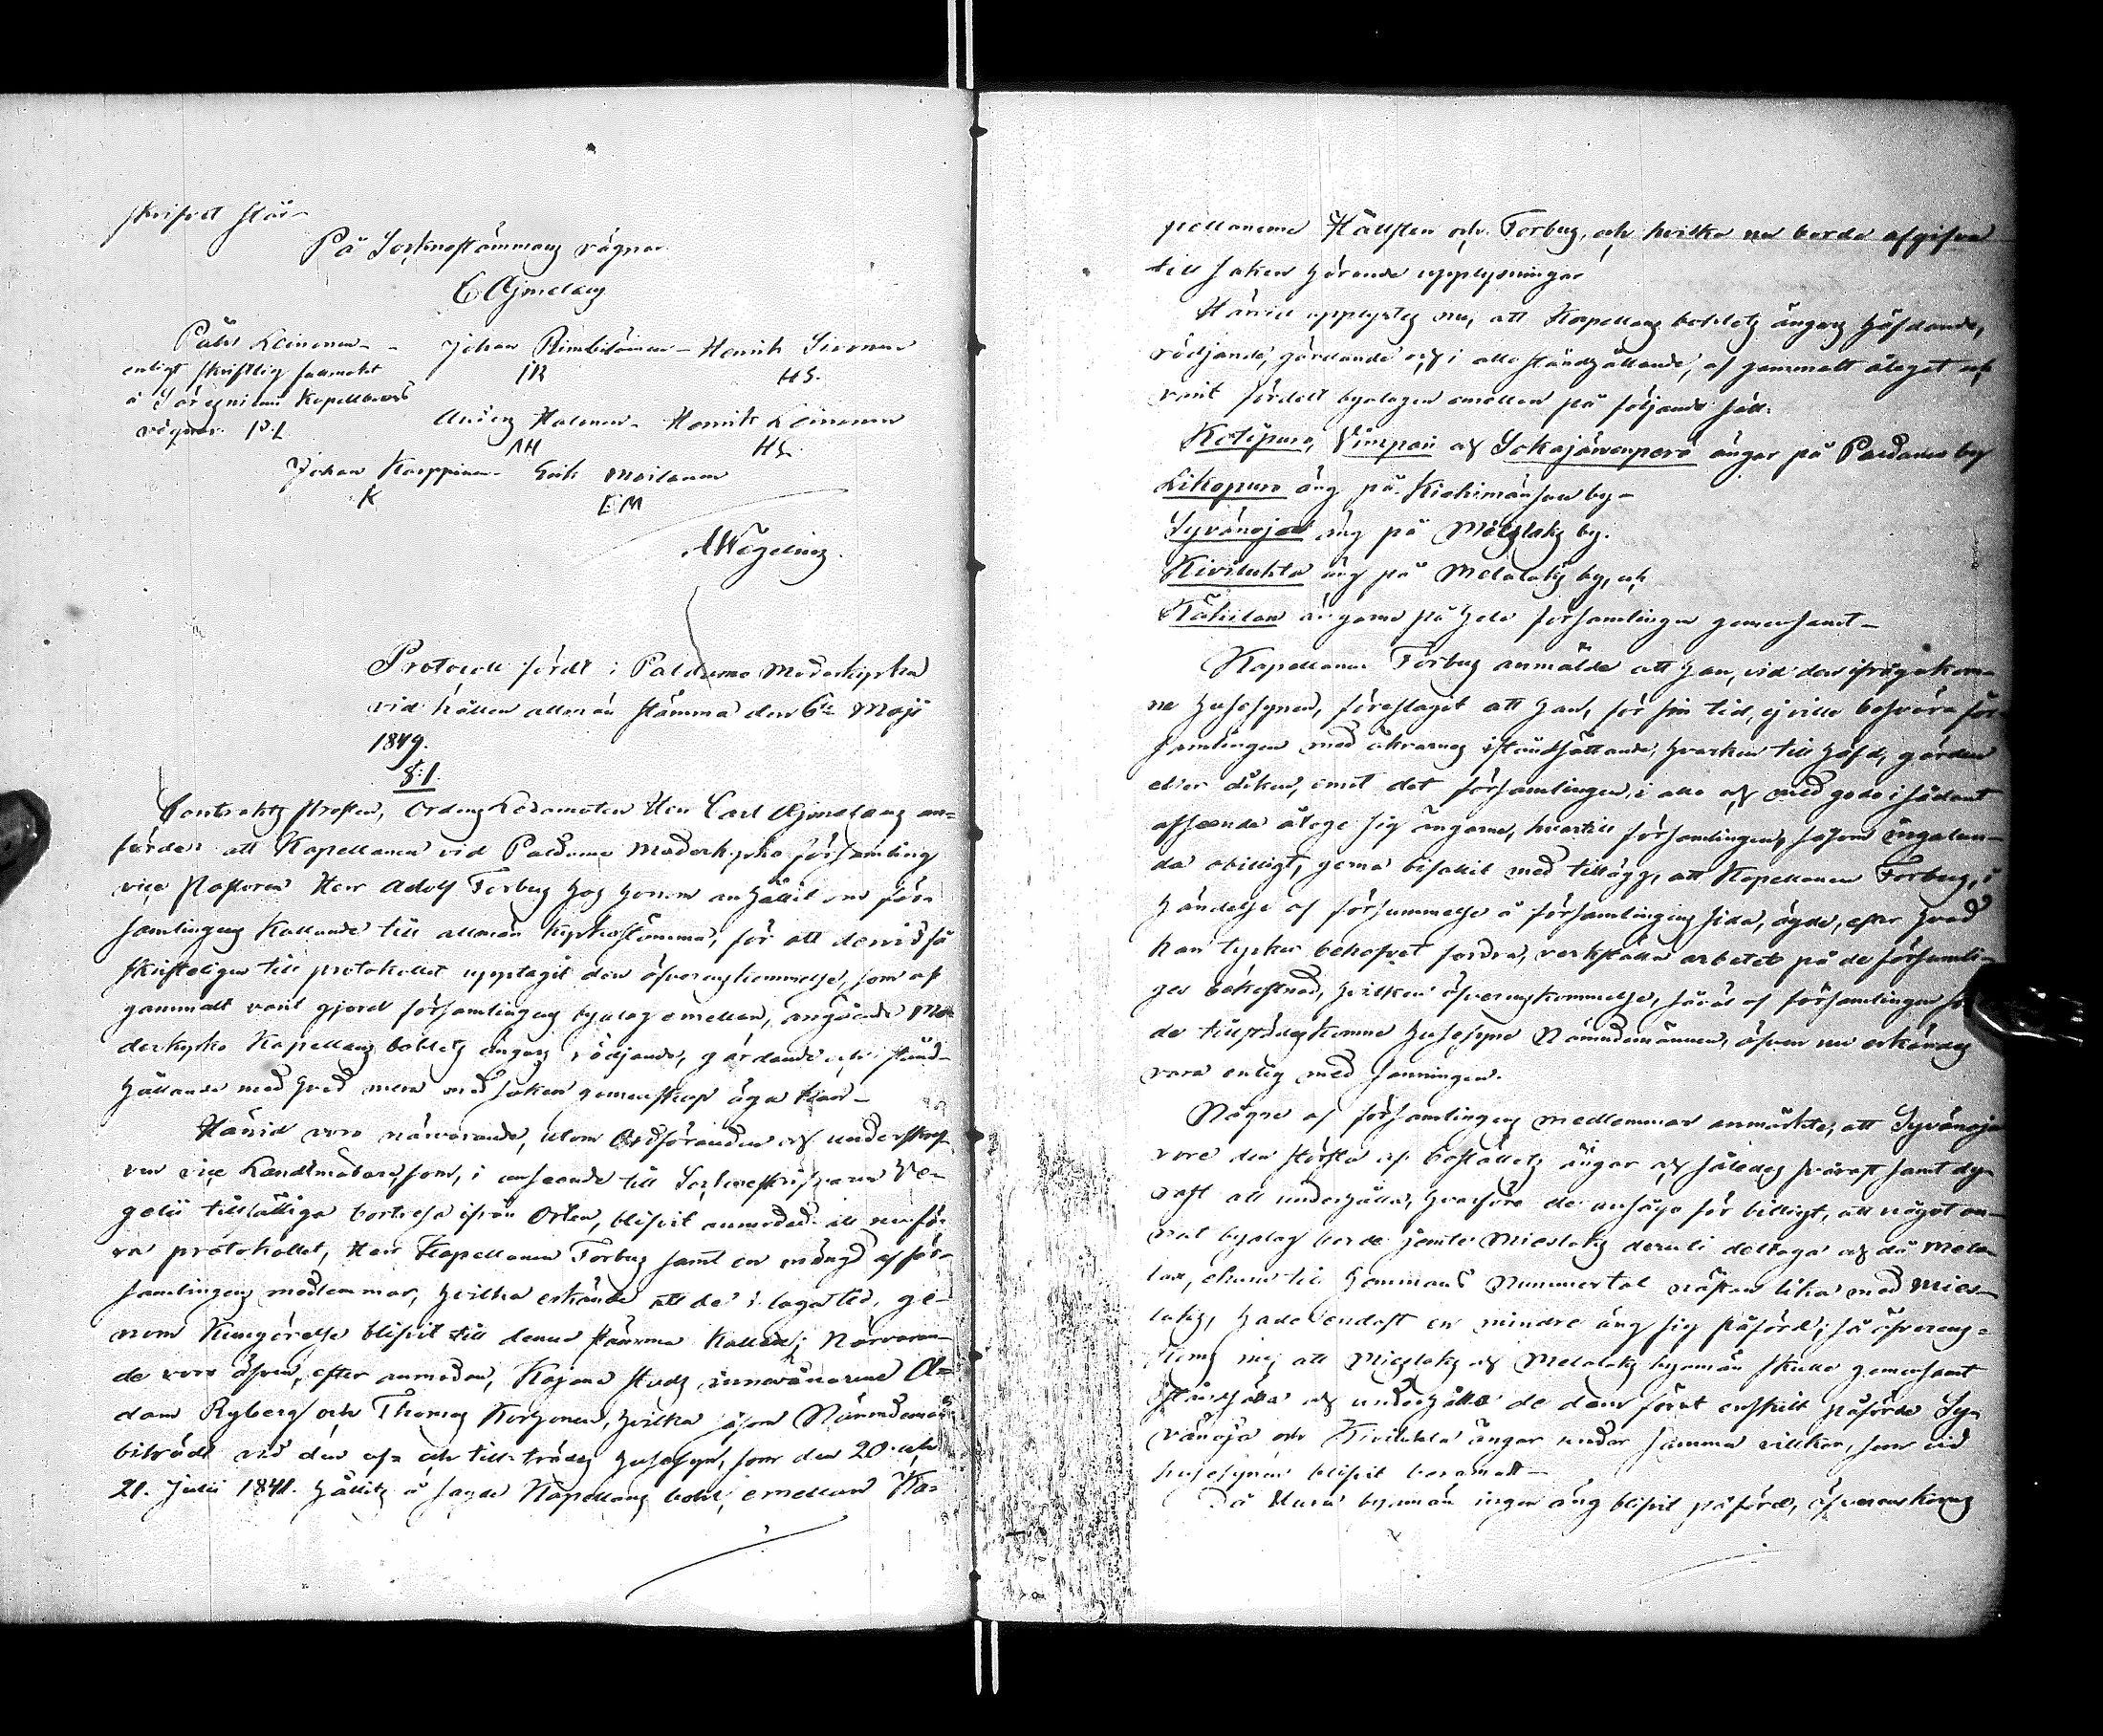 skrifvit står
På Socknestämmans vägnar
C Ajmelæus
Påhl Leinonen - Johan Rimbiläinen - Henrik Sirenen
enligt skriftlig fullmakt IR HS.
å Säresniemi Kapellboers
vägnar P.L Anders Halonen - Henrik Leinonen
AH HL.
Johan Karppinen - Erik Moilanen
K EM
A Wegelius.
Protocoll fördt i Paldamo Moderkyrka
vid hållen allmän stämma den 6te Maji
1849.
§.1.
Contrakts Prosten, Ordens Ledamoten Herr Carl Ajmelæus an-
förde: att Kapellanen vid Paldamo Moderkyrko församling
vice Pastoren Herr Adolf Forbus hos honom anhållit om för-
samlingens kallande till allmän kyrkostämma, för att dervid få
skrifteligen till protokollet upptagit den öfverenskommelse, som af
gammalt varit gjord församlingens byalag emellan, angående Mo-
derkyrko Kapellans bohlets ängars rödjande, gärdande och stånd-
hållande med hvad mera med saken gemenskap äga kan -
Härvid voro närvarande, utom Ordföranden och underskref-
ven vice Landtmätare, som, i anseende till Sockneskrifvaren We-
gelii tillfälliga bortresa ifrån Orten, blifvit anmodad att nu fö-
ra protokollet, Herr Kapellanen Forbus samt en mängd af för-
samlingens medlemmar, hvilka erkände att de i laga tid, ge-
nom kungörelse blifvit till denna stämma kallade; Närvaran-
de voro äfven, efter anmodan, Kajana stads innevånarene A-
dam Ryberg och Thomas Korhonen, hvilka såsom Nämndemän
biträdt vid den af- och tillträdes husesyn, som den 20 och
21. Julii 1841. hållits å sagde Kapellans bohl, emellan Ka-
pellanerne Hällsten och Forbus, och hvilka nu borde afgifva
till saken hörande upplysningar
Härvid upplystes nu, att Kapellans bohlets ängars häfdande,
rödjande, gärdande och i allo ståndhållande, af gammalt ålegat och
varit fördelt byalagen emellan på följande sätt:
Kotipuro, och Sokajärvenperä ängar på Paldamo by
Likopuro äng på Kiehimänsuu by -
Syvänoja äng på Mieslaks by.
Kivilukta äng på Melalaks by, och
ängarne på hela församlingen gemensamt -
Kapellanen Forbus anmälde att han, vid den ifrågakom-
ne husesynen, föreslagit att han, för sin tid, ej ville besvära för-
samlingen med åkrarnes iståndsättande, hvarken till häfd, gärden
eller diken, emot det församlingen, i allo och med goda i sådant
afseende åloge sig ängarne, hvartill församlingen, såsom ingalun-
da obilligt, gerna bifallit med tillägg, att Kapellanen Forbus, i
händelse af försummelse å församlingens sida, ägde, efter hvad
han tycker behofvet fordra, verkställa arbetet på de försumli-
ges bekostnad, hvilken öfverenskommelse, såväl af församlingen som
de tillstädeskomne husesyne Nämndemännen, äfven nu erkändes
vara enlig med sanningen.
Någre af församlingens medlemmar anmärkte, att Syvänoja
vore den största af boställets ängar och således svårast samt dy-
rast att underhålla, hvarföre de ansågo för billigt, att något an-
nat byalag borde jämte Mieslaks deruti deltaga och då Mela-
lax, ehuru till hemmans nummertal nästan lika med Mies-
laks, hade endast en mindre äng sig påförd; så öfverens-
koms nu, att Mieslaks och Melalaks byamän skulle gemensamt
iståndsätta och underhålla de dem förut enskilt påförde Sy-
vänoja och Kivilukta ängar under samma villkor, som vid
husesynen blifvit beramadt -
Då Uura byamän ingen äng blifvit påförd, öfverenskoms